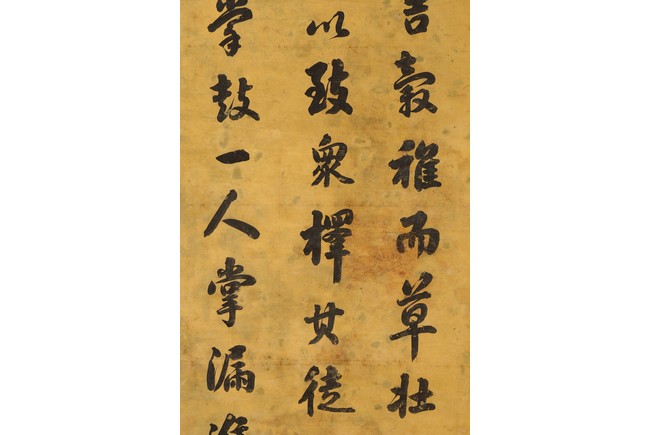 吉穀稚而草壯
以致衆擇其徒
掌鼓一人掌漏